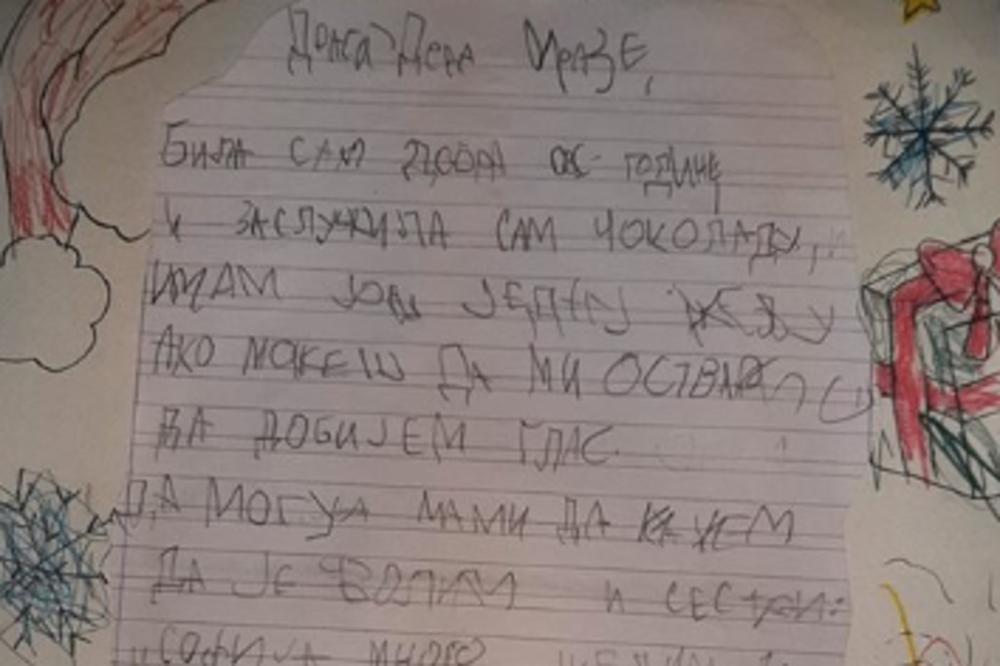 Драга Деда Мразе,
Била сам добра ос године
и заслужила сам чоколаду,
имам још једну жељу
Ако можеш да ми оствариш
да добијем глас.
да могу мами да кажем
да је волим и сестри:
Софија много